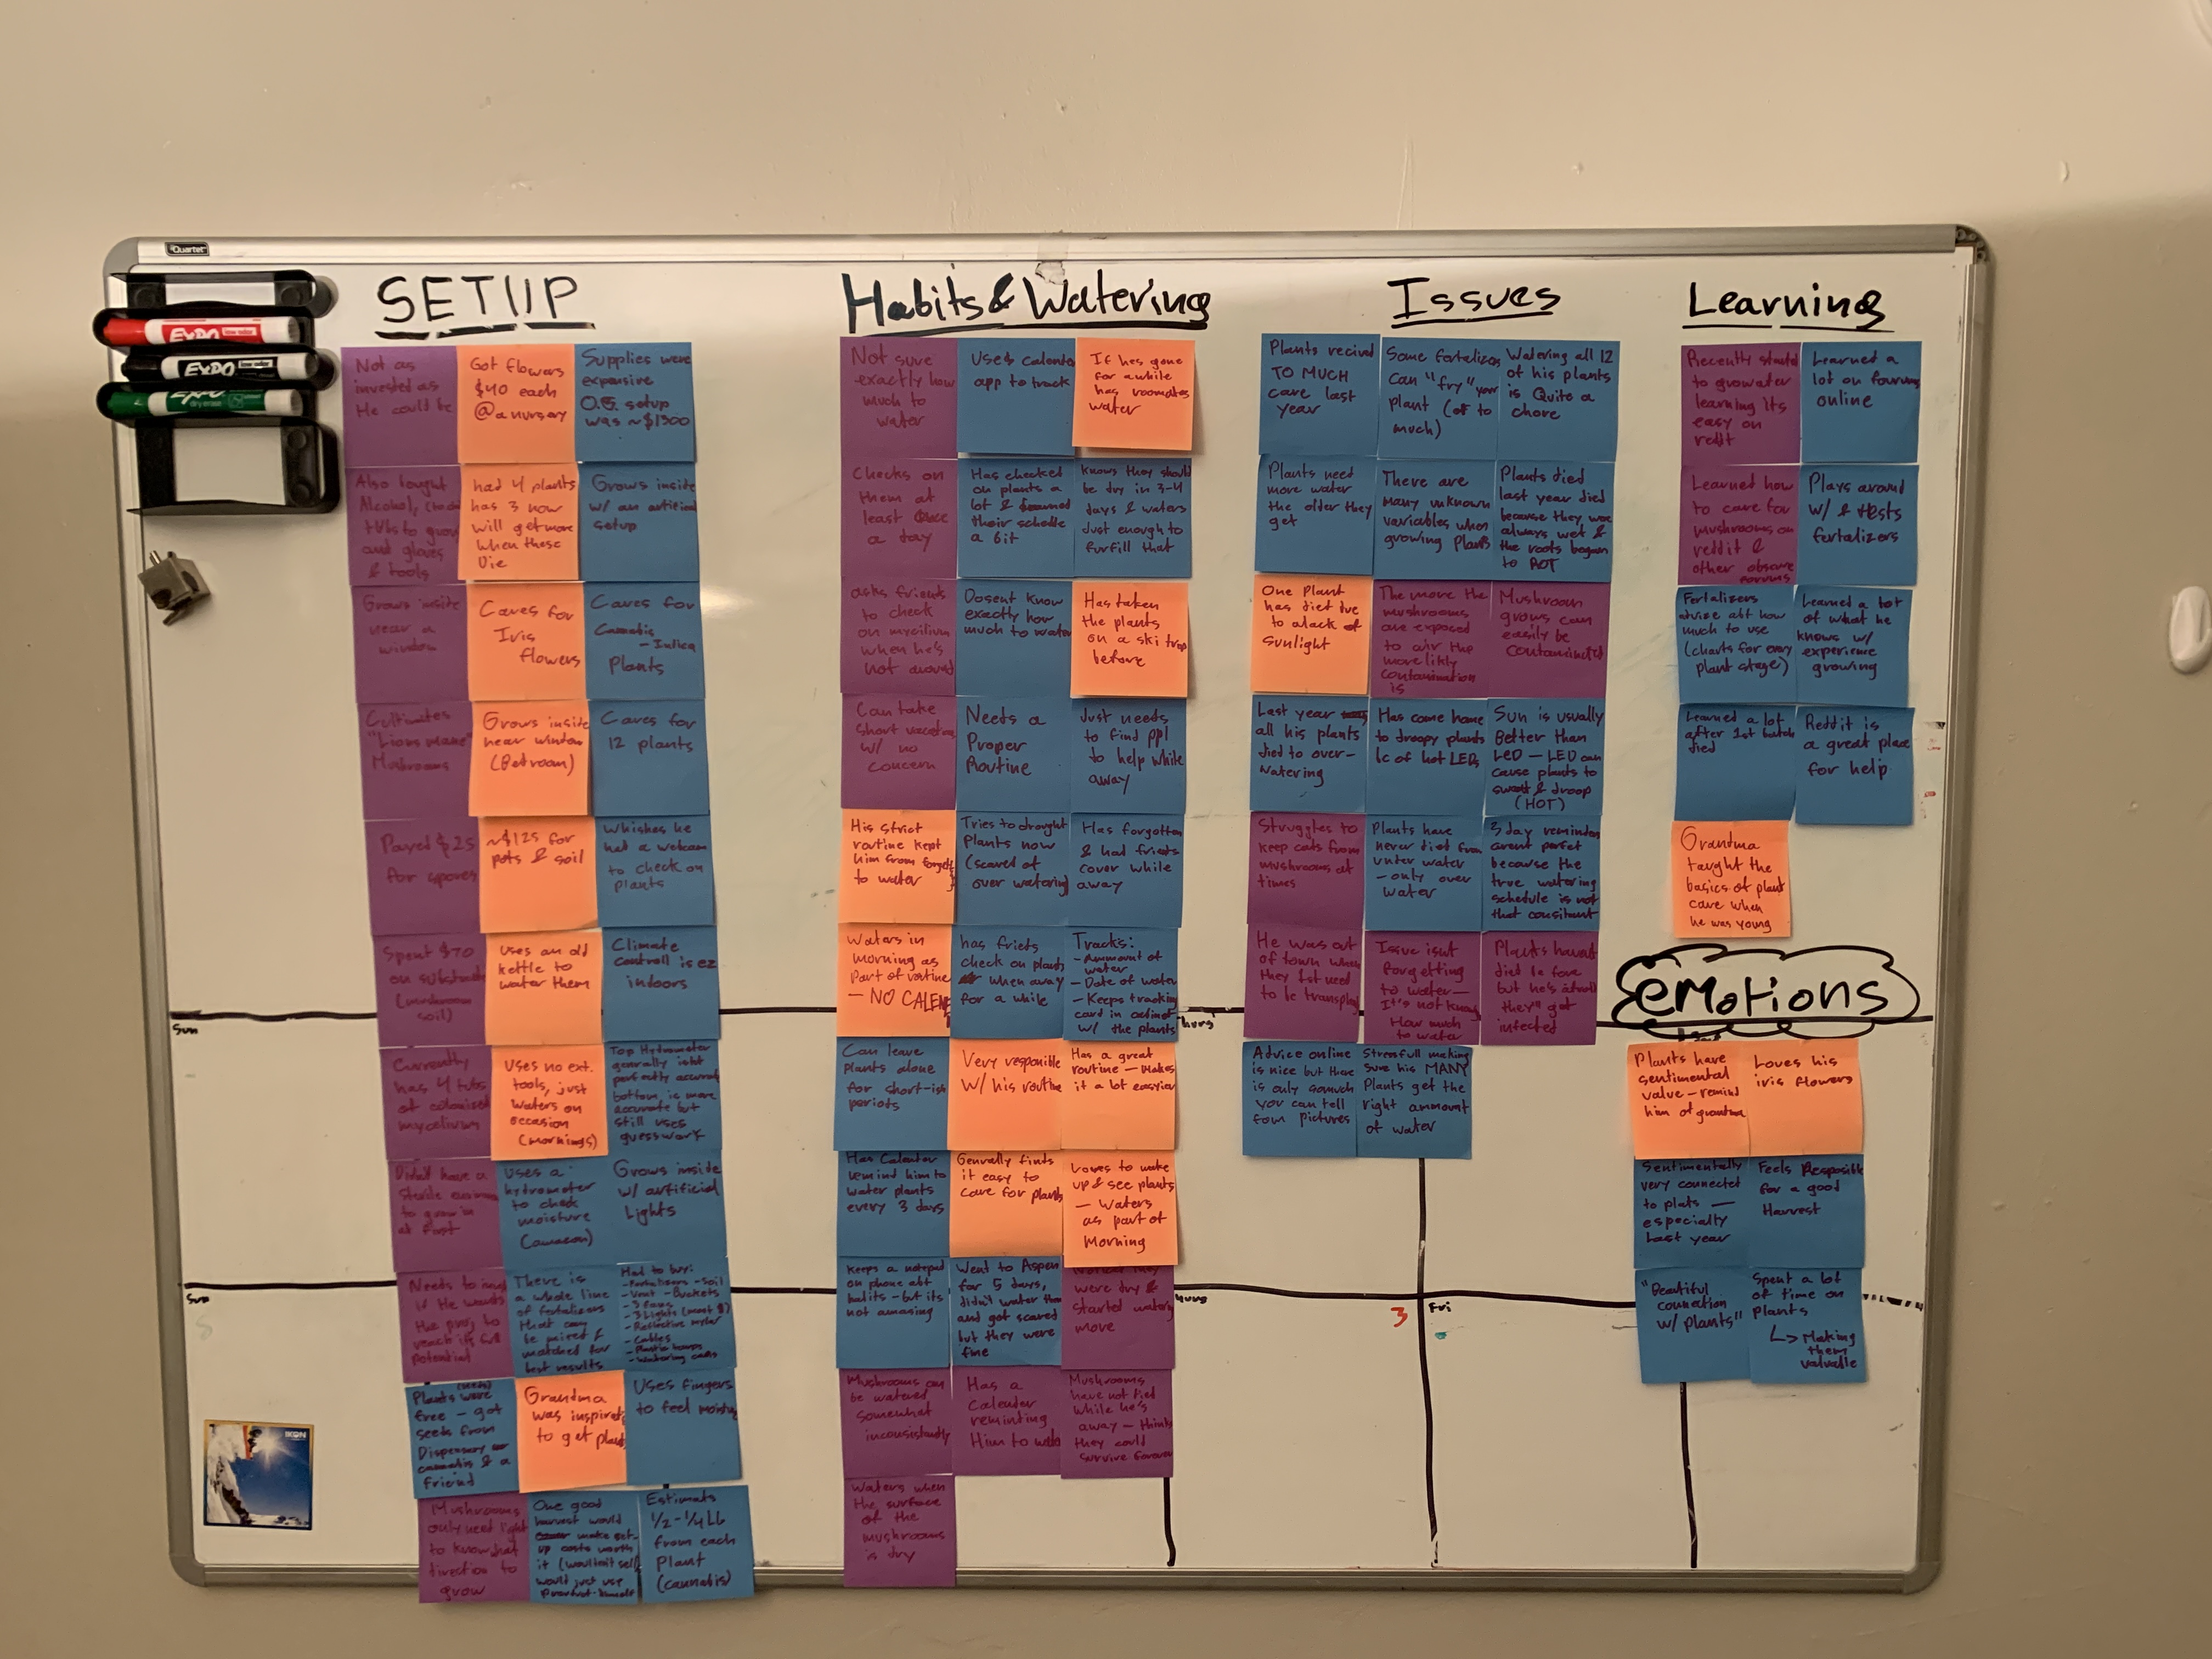 Quartet
EXPO
EXPO
EXPO
SETUP
Not as
invested as
He could be
Got flowers
$40 each
@ a nursery
Supplies were
expensive
O.G. setup
was ~$1300
Also bought
Alcohol,
tubs to grow
and gloves
& tools
had 4 plants
has 3 now
will get more
when these
Die
Grows inside
w/ an artificial
setup
Grows inside
near a
window
Cares for
Iris
flowers
Cares for
Cannabis
- Indica
Plants
Cultivates
"Lions mane"
Mushrooms
Grows inside
near window
(Bedroom)
Cares for
12 plants
Payed $25
for spores
~$125 for
pots & soil
Whishes he
had a webcam
to check on
plants
Spent $70
on substrate
(mushroom
soil)
Uses an old
kettle to
water them
Climate
controll is ez
indoors
Currently
has 4 tubs
of colonized
mycelium
Uses no ext.
tools, just
waters on
occasion
(mornings)
Top Hydrometer
generally isnt
perfectly accurate
bottom is more
accurate but
still uses
guesswork
Didn't have a
sterile
to grow in
at first
Uses a
hydrometer
to check
moisture
(amazon)
Grows inside
w/ artificial
Lights
Needs to
if He wants
the proj to
reach its full
potential
There is
a whole line
of fertalizers
that can
be mixed &
matched for
best results
Had to buy:
- Fertalizers - Soil
- Vent - Buckets
- 3 Fans
- 3 Lights (most $)
- Reflective mylar
- Cables
- Plastic
- Watering cans
Plants were
(seeds)
free - got
seeds from
Dispensary
cannabis & a
friend
Grandma
was inspirat
to get plant
Uses fingers
to feel moisture
Mushrooms
only need light
to know what
direction to
grow
One good
harvest would
make set-
up costs worth
it (wouldn't sell
would just use
product himself
Estimats
1/2 - 1/4 Lb
from each
plant
(cannabis)
Habits & Watering
Not sure
exactly how
much to
water
Uses calender
app to track
If hes gone
for awhile
has roomates
water
Checks on
them at
least Once
a day
Has checked
on plants a
lot & learned
their schedule
a bit
Knows they should
be dry in 3-4
days & waters
Just enough to
furfill that
asks friends
to check
on mycilium
when he's
not around
Dosent know
exactly how
much to water
Has taken
the plants
on a ski trip
before
Can take
short vacation
w/ no
concern
Needs a
Proper
Routine
Just needs
to find ppl
to help while
away
His strict
routine kept
him from forgetting
to water
Tries to drought
plants now
(scared of
over watering)
Has forgotten
& had frieds
cover while
away
Waters in
morning as
part of routine
- NO CALEN
has frieds
check on plants
when away
for a while
Tracks:
- Ammount of
water
- Date of water
- Keeps tracking
card in cabinet
w/ the plants
Can leave
plants alone
for short-ish
periods
Very responible
w/ his routine
Has a great
routine - makes
it a lot easyier
Has Calender
remind him to
water plants
every 3 days
Genrally finds
it easy to
care for plants
Loves to wake
up & see plants
- Waters
as part of
Morning
Keeps a notepad
on phone abt
habits - but its
not amazing
Went to Aspen
for 5 days,
didn't water them
and got scared
but they were
fine
Noticed they
were dry &
started watering
more
Mushrooms can
be watered
somewhat
inconsistantly
Has a
Calender
reminding
Him to water
Mushrooms
have not died
while he's
away - thinks
they could
survive forever
Waters when
the surface
of the
mushrooms
is dry
Issues
Plants recived
TO MUCH
care last
year
Some fertalizers
can "fry" your
plant (of to
much)
Watering all 12
of his plants
is Quite a
chore
Plants need
more water
the older they
get
There are
many unknown
variables when
growing plants
Plants died
last year died
because they were
always wet &
the roots began
to ROT
One Plant
has died due
to a lack of
sunlight
The more the
mushrooms
are exposed
to air the
more likly
contamination
is
Mushroom
grows can
easily be
contaminated
Last year
all his plants
died to over-
watering
Has come home
to droopy plants
bc of hot LEDs
Sun is usually
Better than
LED - LED can
cause plants to
sweat & droop
(HOT)
Struggles to
keep cats from
mushrooms at
times
Plants have
never died from
under water
- only over
water
3 day reminders
arent perfet
because the
true watering
schedule is not
that consitant
He was out
of town when
they 1st need
to be transplant
Issue isnt
forgetting
to water -
It's not know
How much
to water
Plants havent
died be fore
but he's afraid
they'll get
infected
Advice online
is nice but there
is only so much
you can tell
from pictures
Stressfull making
sure his MANY
Plants get the
right ammount
of water
Learning
Recently started
to grow
learning its
easy on
reddit
Learned a
lot on fourms
online
Learned how
to care for
mushrooms on
reddit &
other obscure
forums
Plays around
w/ & tests
fertalizers
Fertalizers
advize abt how
much to use
(charts for every
plant stage)
Learned a lot
of what he
knows w/
experience
growing
Learned a lot
after 1st batch
died
Reddit is
a great place
for help
Grandma
taught the
basics of plant
care when
he was young
emotions
Plants have
sentimental
value - remind
him of grandma
Loves his
iris flowers
Sentimentally
very connected
to plats -
especially
last year
Feels Resposible
for a good
Harvest
"Beautiful
connection
w/ plants"
Spent a lot
of time on
plants
↳ Making
them
valuable
Sun
Thurs
Sun
3
Fri
IKON